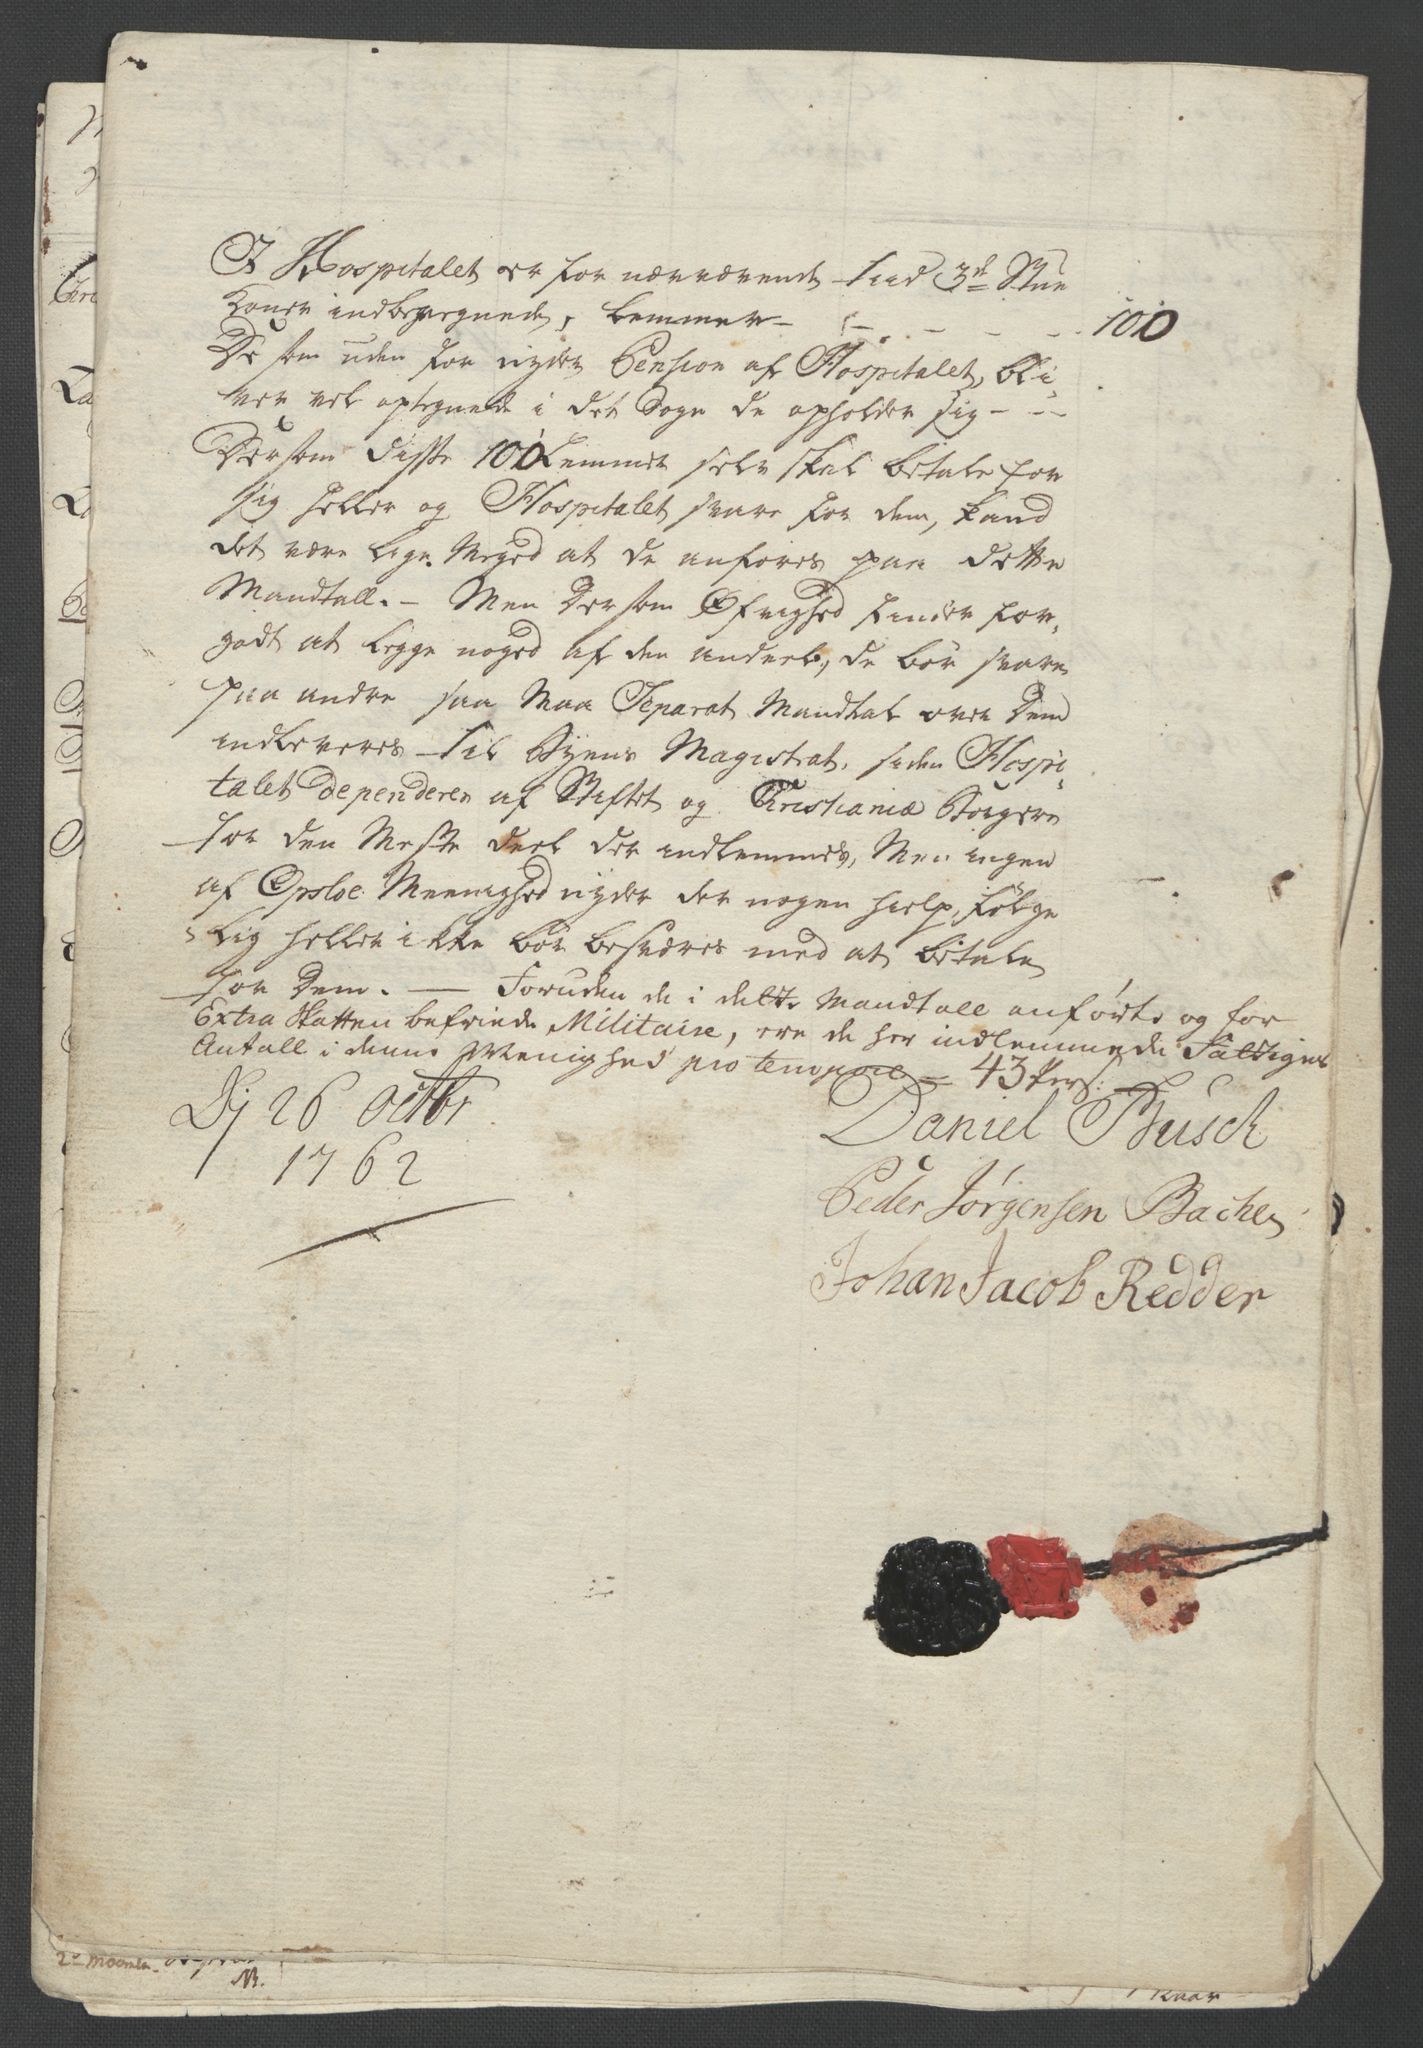 I Hospitalet er for nærværende Tiid 3de Stue
Koner indbereignede, Lemmer - - - - - 100
De som uden for nyder Pension af Hospitalet, bli
ver vel optegnede i det Sogn de opholder sig - -
Dersom disse 100 Lemmer selv skal betale for
sig heller og Hospitalet svare for dem, kand
det være lige Meged at de anføres paa dette
Mandtall. - Men dersom Øfrighed finder for
godt at legge noged af den andeel, de bør svare
paa andre saa Maa Separat Mandtal over Dem
indleveres til Byens Magistrat, siden Hospi
talet dependerer af Stiftet og Christiania Borgere
for den Meste deel der indlemmes, Men ingen
af Opsloe Meenighed nyder der nogen hielp, følge
lig heller ikke bør besværes med at betale
for Dem. — Foruden de i dette Mandtall anførte og for
Extra Skatten befriede Militaire, ere de her indlemmede Fattiges
Antall i denne Meenighed pro tempore = 43 Pers:
Dj 26 Octbr
1762
Daniel Busch
Peder Jørgensen Bache
Johan Jacob Redder
2de
NB.